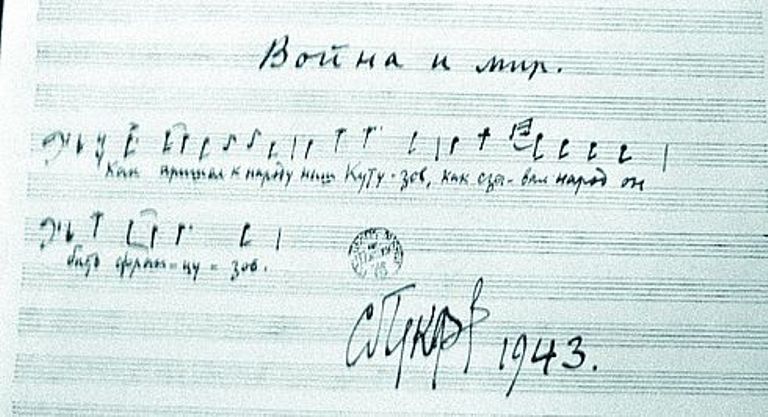 Война и мир.
Как пришел к народу наш Куту-зов, как сзы-вал народ он
бить фран=цу=зов.
СПркфв 1943.